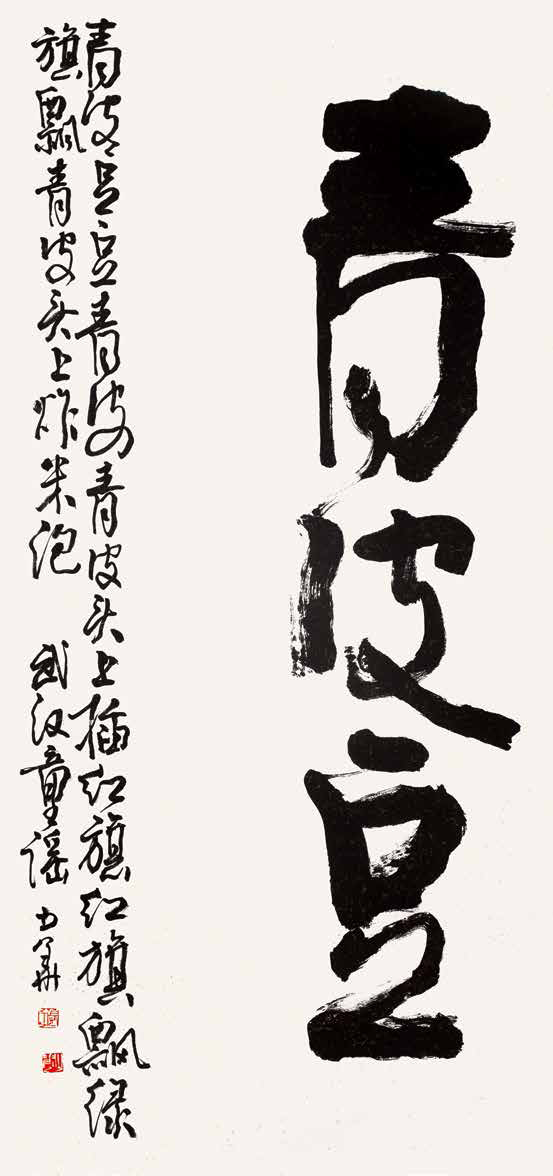 青皮豆
青皮豆豆青皮青皮头上插红旗红旗飘绿
旗飘青皮头上炸米泡 武汉童谣